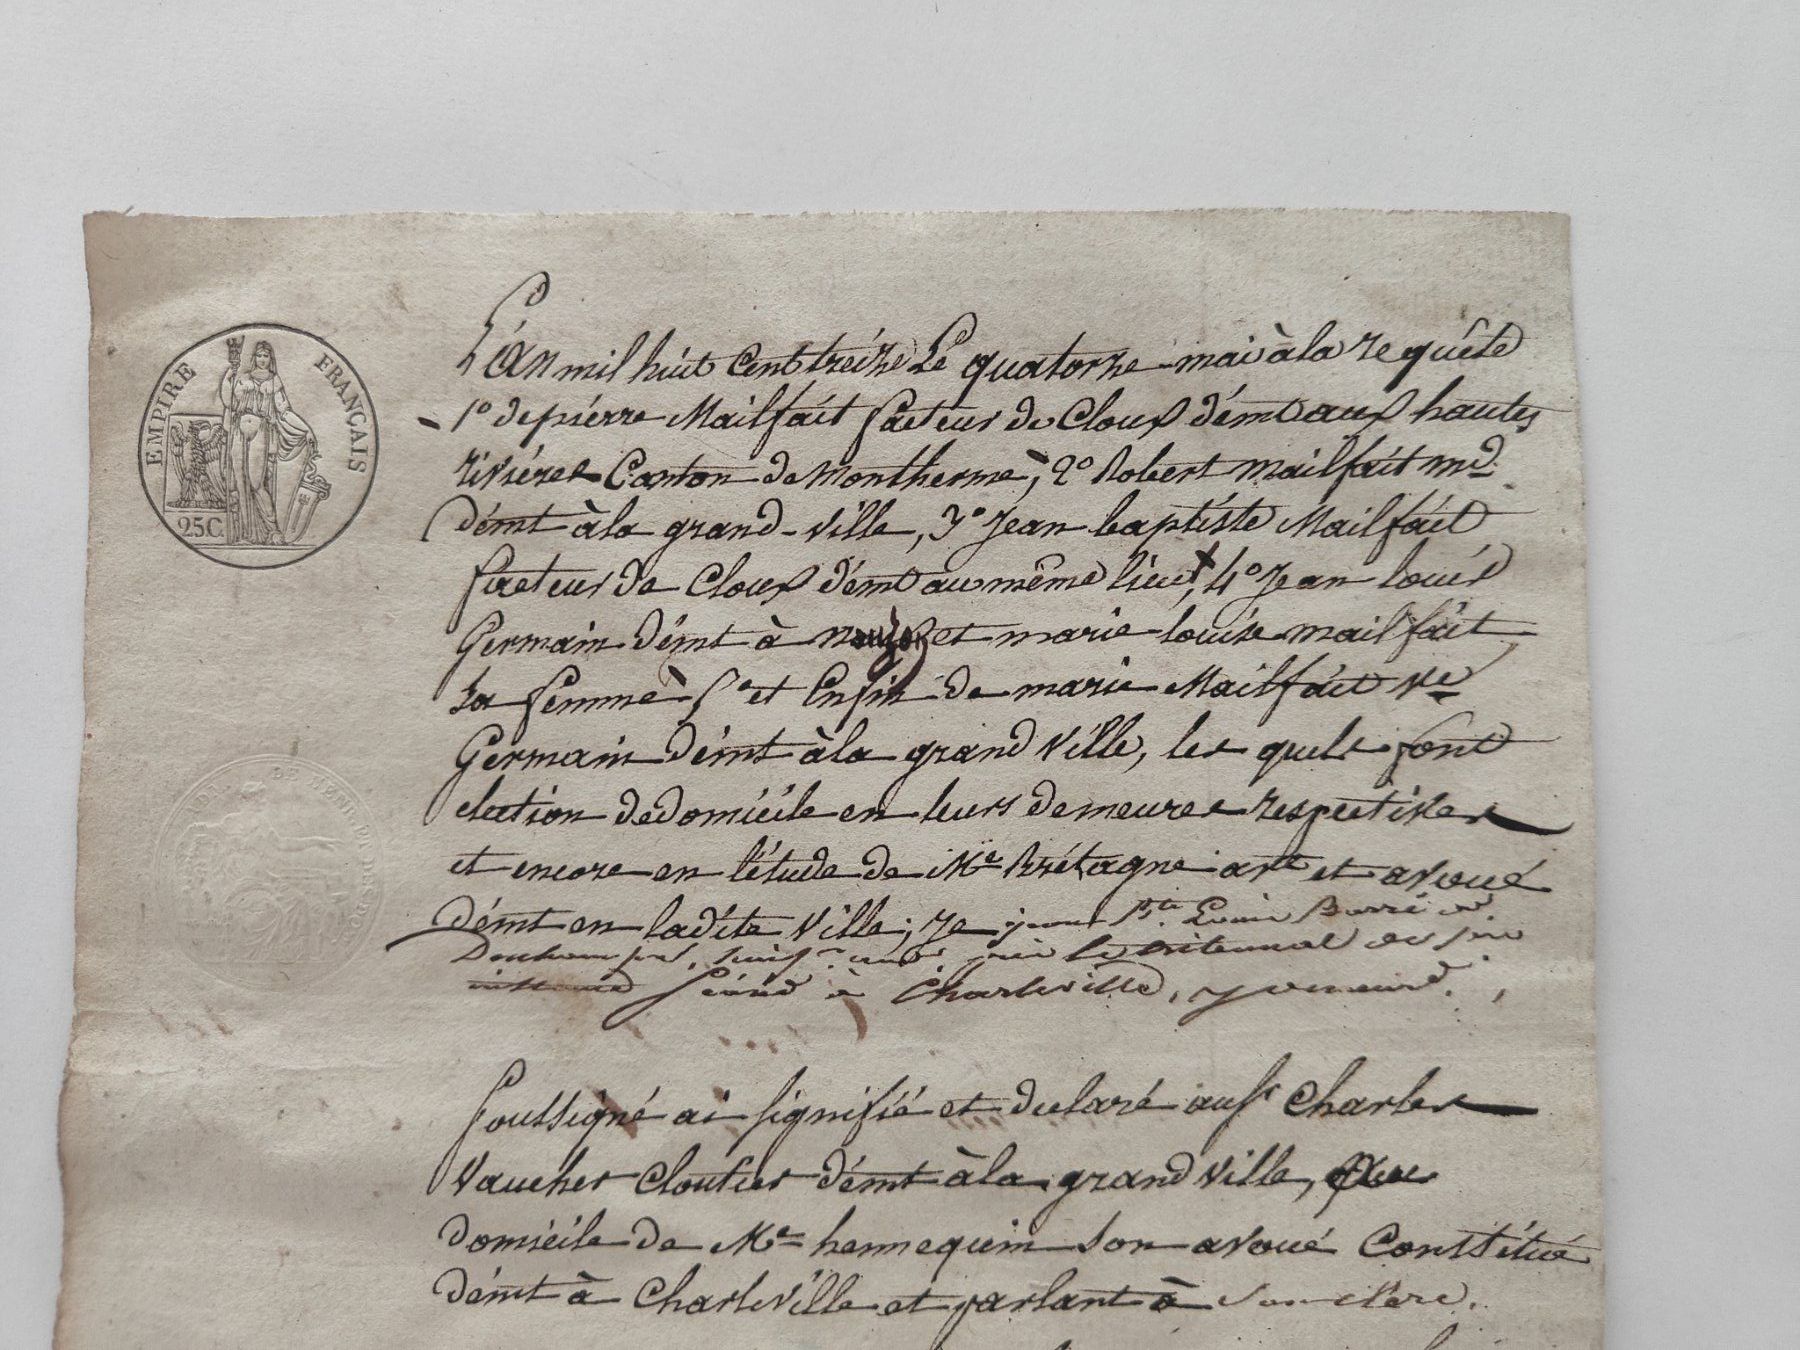 EMPIRE FRANÇAIS
25C.
L'an mil huit Cent treize Le quatorze mai à la requête
1° de pierre Mailfait facteur de Cloux démt aux hautes
rivières Canton de Montherme, 2° Robert mailfait md
démt à la grand-ville, 3° Jean baptiste Mailfait
facteur de Cloux démt au même lieu, 4° Jean louis
Germain démt à nouzon et marie louise mailfait
sa femme, 5° et Enfin de marie Mailfait ve
Germain démt à la grand ville, les quels font
election de domicile en leurs demeures respectives
et encore en l'étude de Me Brétagne avt et avoué
démt en ladite ville; Je Louis
le tribunal de
séand à Charleville, y demeurt.
soussigné ai signifié et declaré au sr Charles
Vaucher Cloutier démt à la grand ville, au
domicile de Me hennequin son avoué Constitué
démt à Charleville et parlant à son clerc.